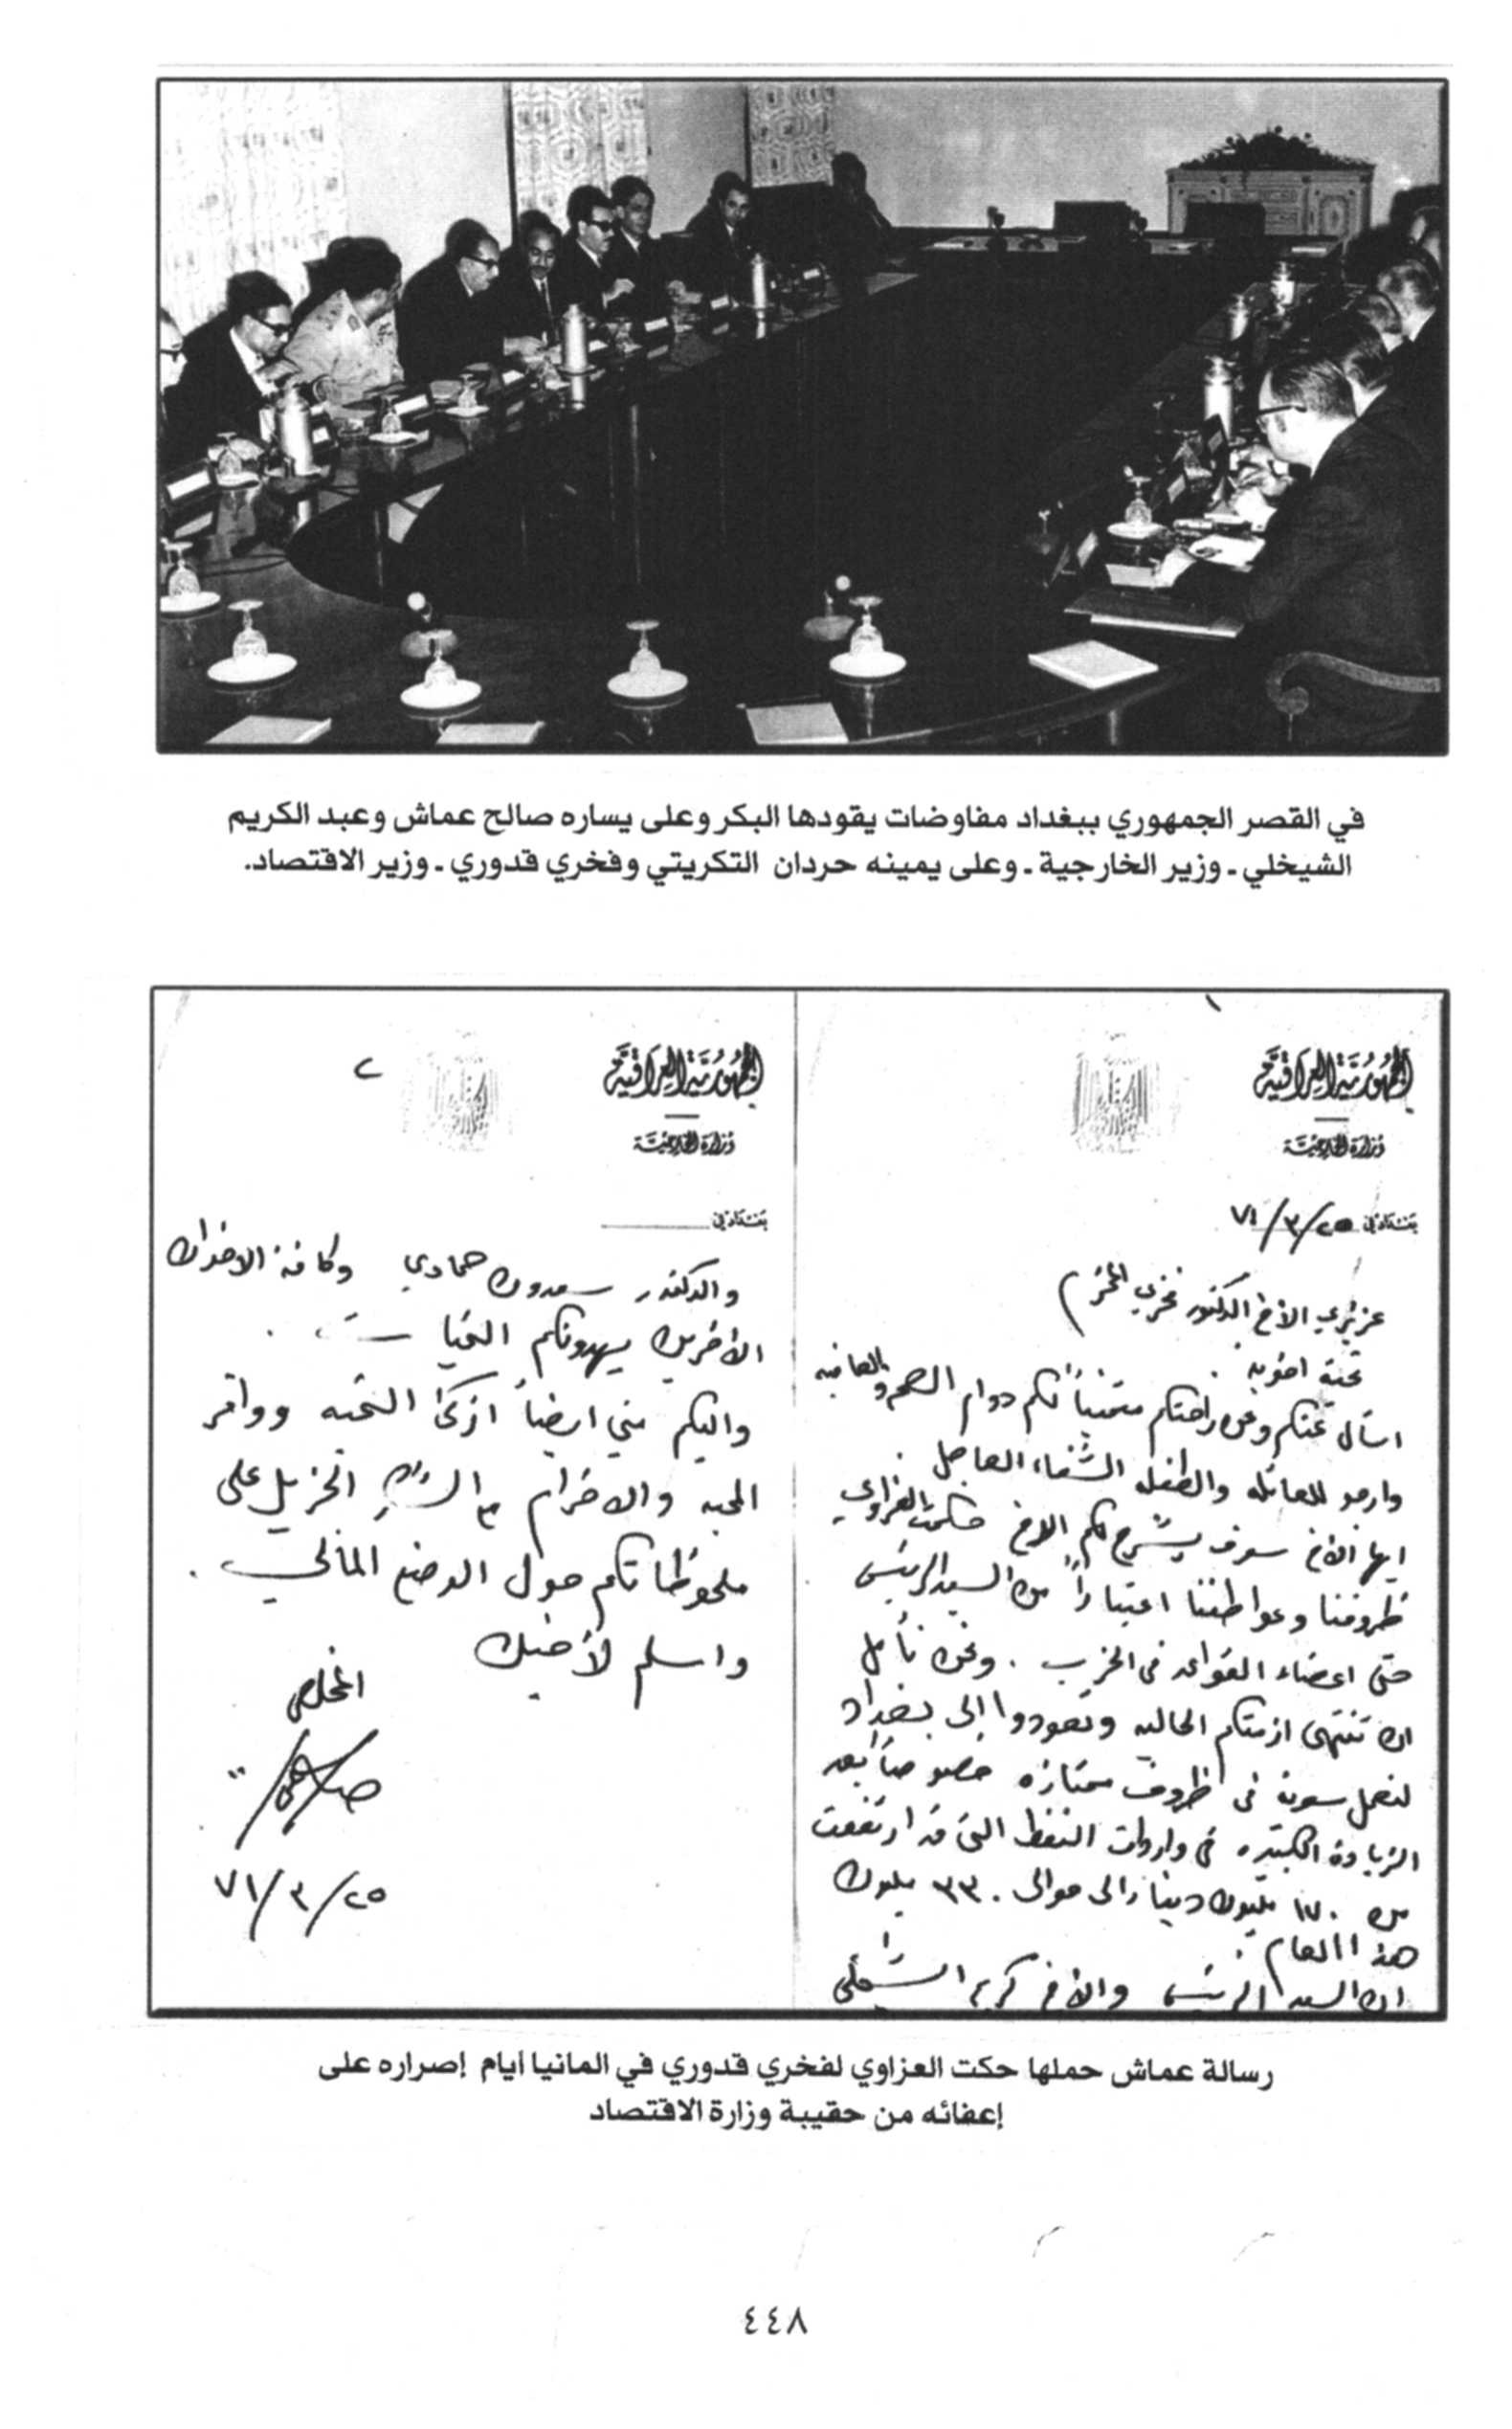 في القصر الجمهوري ببغداد مفاوضات يقودها البكر وعلى يساره صالح عماش وعبد الكريم
الشيخلي ـ وزير الخارجية ـ وعلى يمينه حردان التكريتي وفخري قدوري ـ وزير الاقتصاد.
١
الجمهورية العراقية
وزارة الخارجية
بغداد في ٢٥/٣/٧١
عزيزي الأخ الدكتور فخري المحترم
تحية اخوية
اسأل عنكم وعن راحتكم متمنياً لكم دوام الصحة والعافيه
وارجو للعائله والطفله الشفاء العاجل .
ايها الأخ سوف يشرح لكم الاخ حكمت العزاوي
ظروفنا وعواطفنا اعتباراً من السيد الرئيس
حتى اعضاء القواعد في الحزب . ونحن نأمل
ان تنتهي ازمتكم الحاليه وتعودوا الى بغداد
لنعمل سوية في ظروف ممتازه خصوصاً بعد
الزيادة الكبيره في واردات النفط التي قد ارتفعت
من ١٧٠ مليون دينار الى حوالي ٣٣٠ مليون
هذا العام .
ان السيد الرئيس والأخ كريم الشيخلي
٢
الجمهورية العراقية
وزارة الخارجية
بغداد في
والدكتور سعدون حمادي وكافة الاخوان
الآخرين يهدونكم التحيات .
واليكم مني ايضاً ازكى التحيه ووافر
المحبه والاحترام مع الشكر الجزيل على
ملحوظاتكم حول الوضع المالي .
واسلم لأخيك
المخلص
٢٥/٣/٧١
رسالة عماش حملها حكت العزاوي لفخري قدوري في المانيا أيام إصراره على
إعفائه من حقيبة وزارة الاقتصاد
٤٤٨